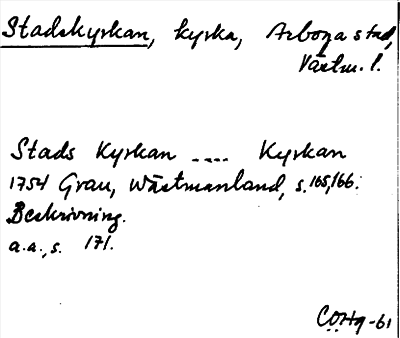 Stadskyrkan, kyrka, Arboga stad,
Västm. l.
Stads Kyrkan .... Kyrkan
1754 Grau, Wästmanland, s. 165, 166.
Beskrivning.
a.a., s. 171.
COHg-61